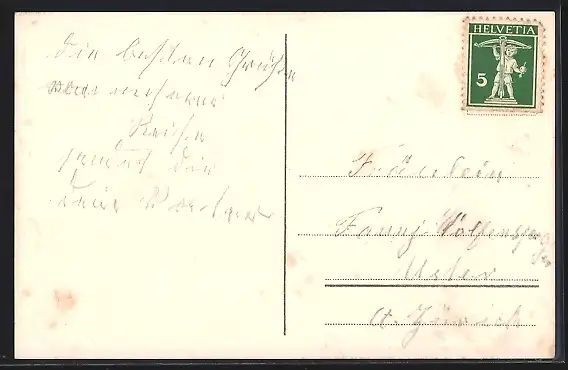 die besten Grüsse
von meherer
Reise
sendet dir
HELVETIA
5
Fräulein
Fanny
Uster
Ct. Zürich